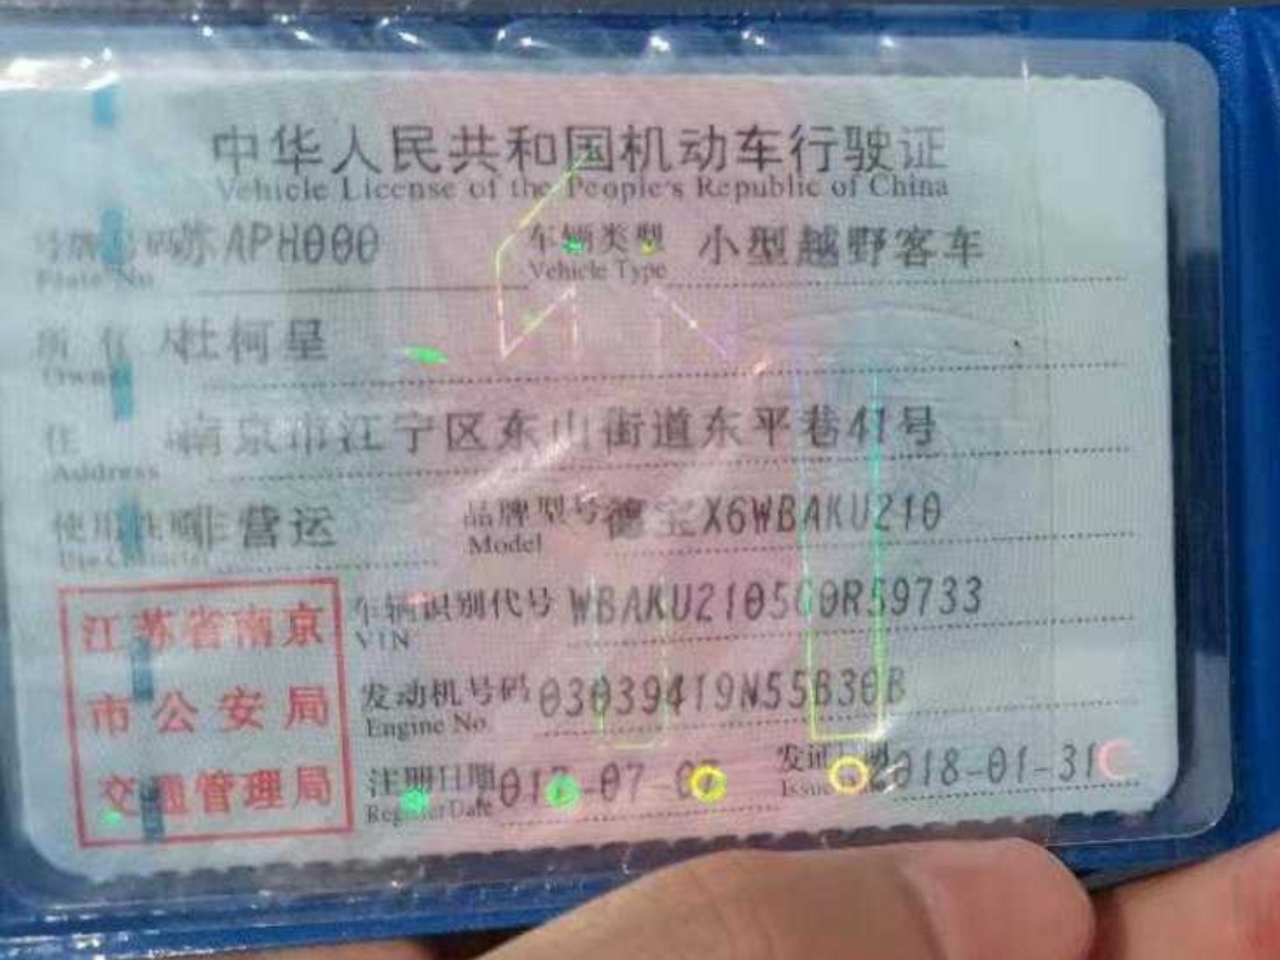 中华人民共和国机动车行驶证
Vehicle License of the People's Republic of China
号牌号码 苏APH000 车辆类型 小型越野客车
Plate No. Vehicle Type
所有人 杜柯呈
Owner
住 南京市江宁区东山街道东平巷41号
Address
使用性质 非营运 品牌型号 德宝X6WBAKU210
Use Character Model
江苏省南京 车辆识别代号 WBAKU2105G0R59733
VIN
市公安局 发动机号码 03039419N55B30B
Engine No.
交通管理局 注册日期 发证日期 2018-01-31
Register Date Issue